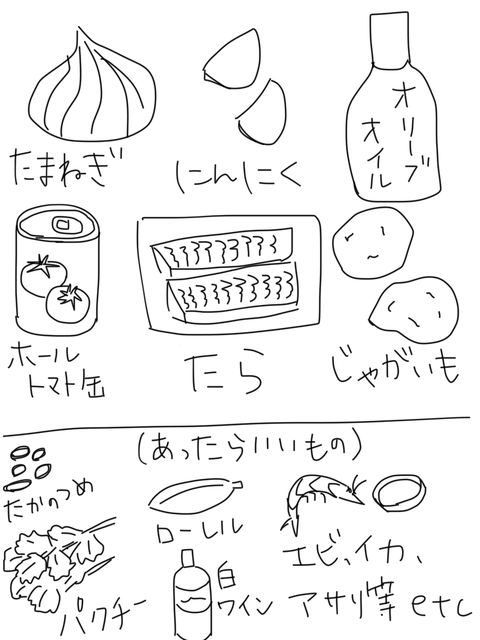 たまねぎ
にんにく
オリーブ
オイル
ホール
トマト缶
たら
じゃがいも
(あったらいいもの)
たかのつめ
ローレル
エビ、イカ、
アサリ等 etc
パクチー
白
ワイン